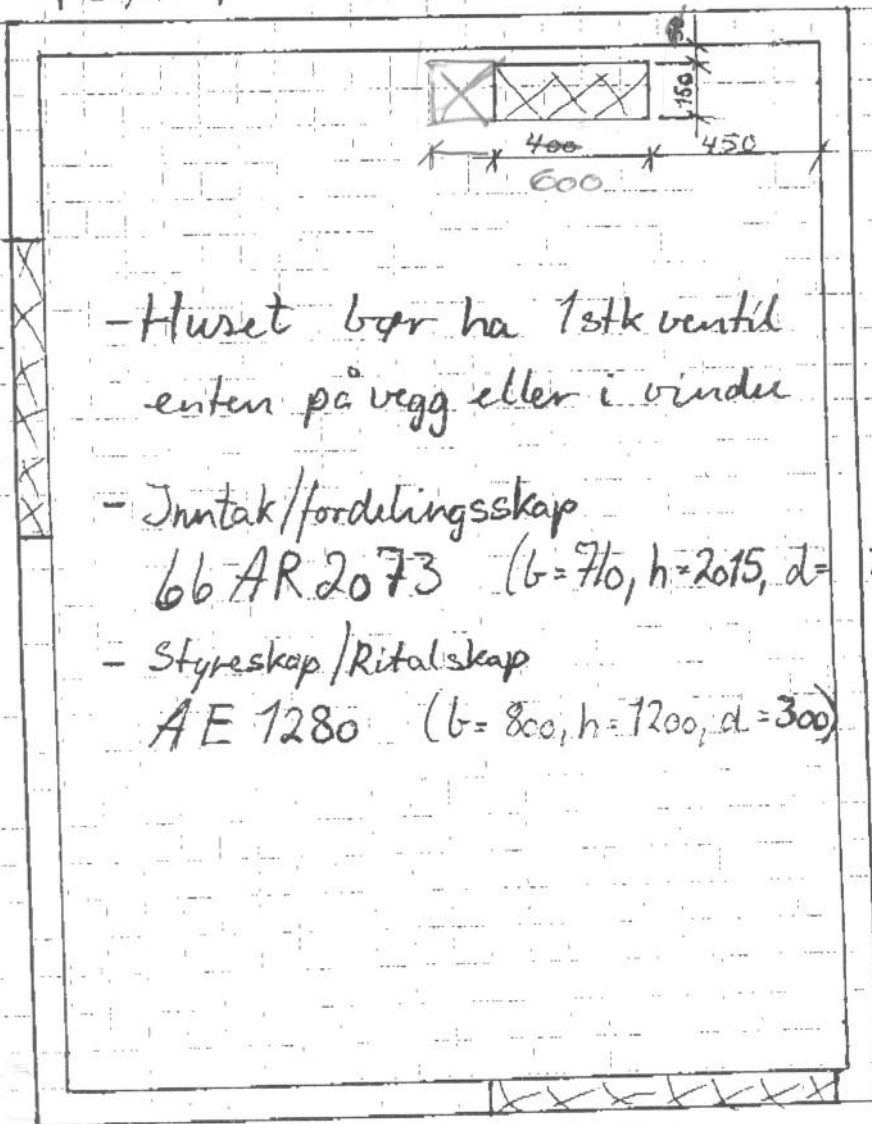 150
400
450
600
- Huset bør ha 1stk ventil
enten på vegg eller i vindu
- Inntak/fordelingsskap
66 AR 2073 (b=710, h=2015, d=
- Styreskap/Ritalskap
AE 1280 (b=800, h=1200, d=300)